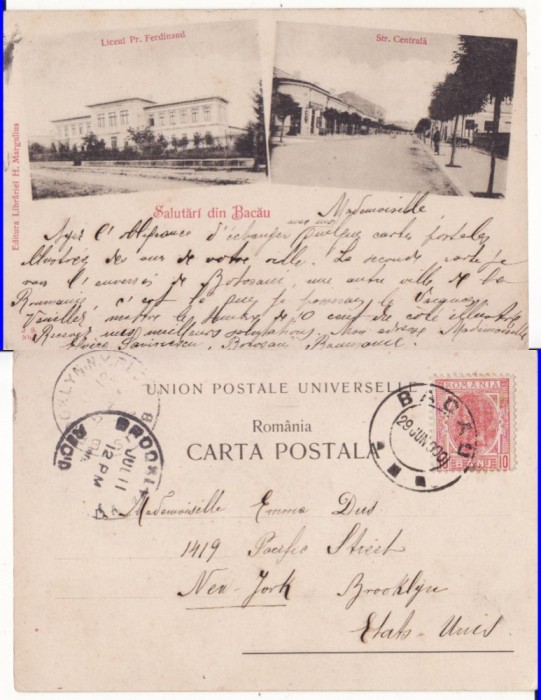 Liceul Pr. Ferdinand
Str. Centrală
Editura Librăriei H. Margulius
Salutări din Bacău
Mademoiselle
Ayez l'obligeance d'échanger avec moi quelques cartes postales
illustrées de vue de votre ville. La seconde carte je
vous l'enverrai de Botosani, une autre ville de la
Roumanie, c'est là que je
Veuillez mettre les timbres de 10 cent du côté illustré
Recevez mes meilleurs salutations. Mon adresse Mademoiselle
Botosani Roumanie.
UNION POSTALE UNIVERSELLE
România
CARTA POSTALA
BACAU
29 JUN 900
ROMANIA
BANI 10
BROOKLYN, N.Y.
BROOKLYN
JUL 11
12 PM
REC'D
Mademoiselle Emma Dus
1419 Pacific Street
New-York Brooklyn
Etats-Unis.